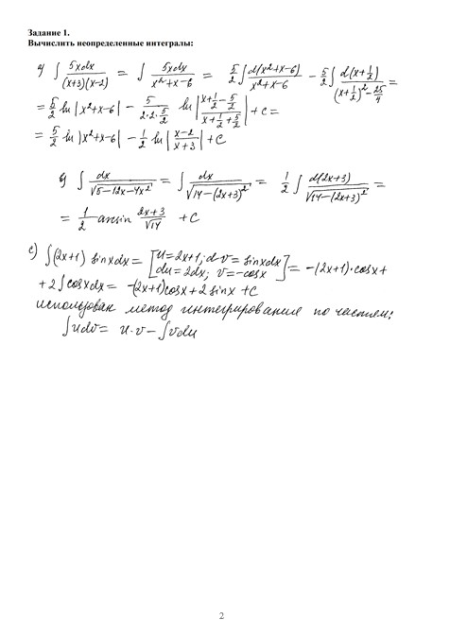 Задание 1.
Вычислить неопределенные интегралы:
∫ 5xdx/((x+3)(x-2)) = ∫ 5xdx/(x²+x-6) = 5/2 ∫ d(x²+x-6)/(x²+x-6) - 5/2 ∫ d(x+1/2)/((x+1/2)²-25/4) =
= 5/2 ln|x²+x-6| - 5/(2·2·5/2) ln|(x+1/2-5/2)/(x+1/2+5/2)| + c =
= 5/2 ln|x²+x-6| - 1/2 ln|(x-2)/(x+3)| + C
∫ dx/√(5-12x-4x²) = ∫ dx/√(14-(2x+3)²) = 1/2 ∫ d(2x+3)/√(14-(2x+3)²) =
= 1/2 arcsin (2x+3)/√14 + C
с) ∫(2x+1) sinxdx = [u=2x+1; dv=sinxdx
du=2dx; v=-cosx] = -(2x+1)·cosx+
+2∫cosxdx = -(2x+1)cosx+2sinx+C
использован метод интегрирования по частям:
∫udv = u·v-∫vdu
2